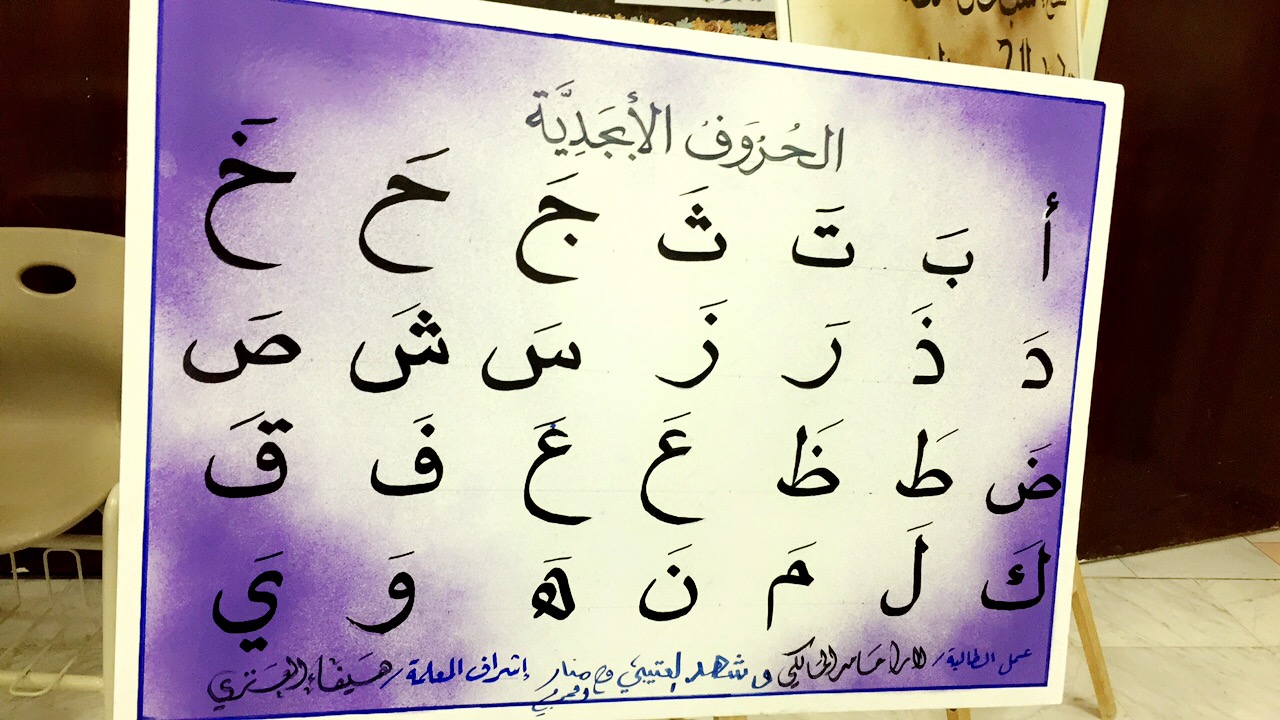 الحُرُوَفُ الأَبجَدِيَّة
أ بَ تَ ثَ جَ حَ خَ
دَ ذَ رَ زَ سَ شَ صَ
ضَ طَ ظَ عَ غَ فَ قَ
كَ لَ مَ نَ هَ وَ يَ
عمل الطالبة / لارا حامد المالكي و شهد العتيبي و منار إشراف المعلمة / هيفاء العنزي